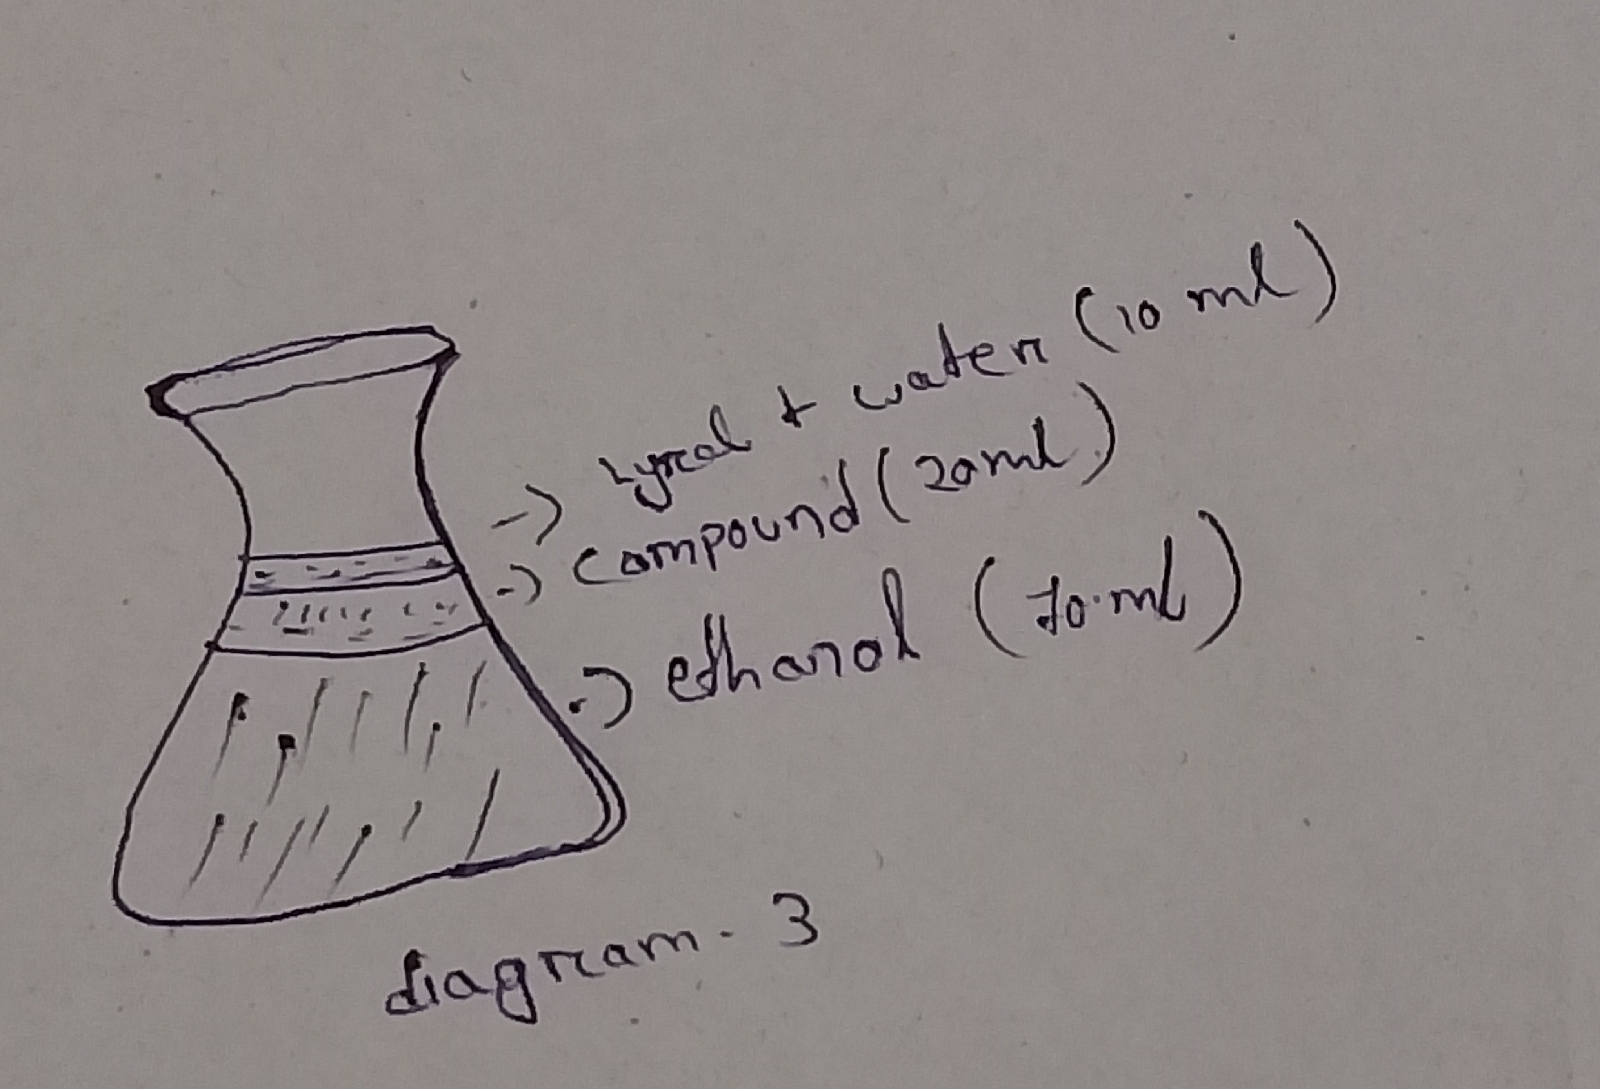 -> lyral + water (10 ml)
-> compound (20 ml)
-> ethanol (70 ml)
diagram - 3